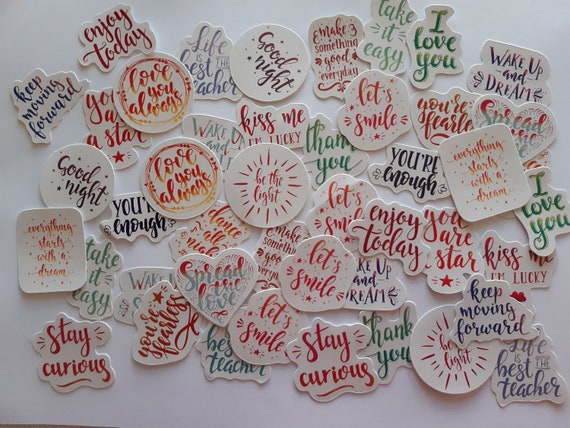 enjoy
today
Life
IS THE
BEST
teacher
Good
night
make
something
good
everyday
take
it
easy
I
love
you
WAKE UP
and
DREAM
keep
moving
forward
you
are
a star
love
you
always
WAKE
and
kiss me
I'M LUCKY
thank
you
let's
smile
you're
fearless
Spread
the
love
everything
starts
with a
dream
Good
night
YOU'RE
enough
love
you
always
be the
light
YOU'RE
enough
I
love
you
everything
starts
with a
dream
take
it
easy
dance
all
night
make
something
good
everyday
let's
smile
enjoy
today
you
are
a star
kiss me
I'M LUCKY
WAKE
DREAM
Spread
the
love
let's
smile
WAKE UP
you're
fearless
let's
smile
thank
you
keep
moving
forward
stay
curious
best
teacher
stay
curious
be the
light
Life
IS THE
best
teacher